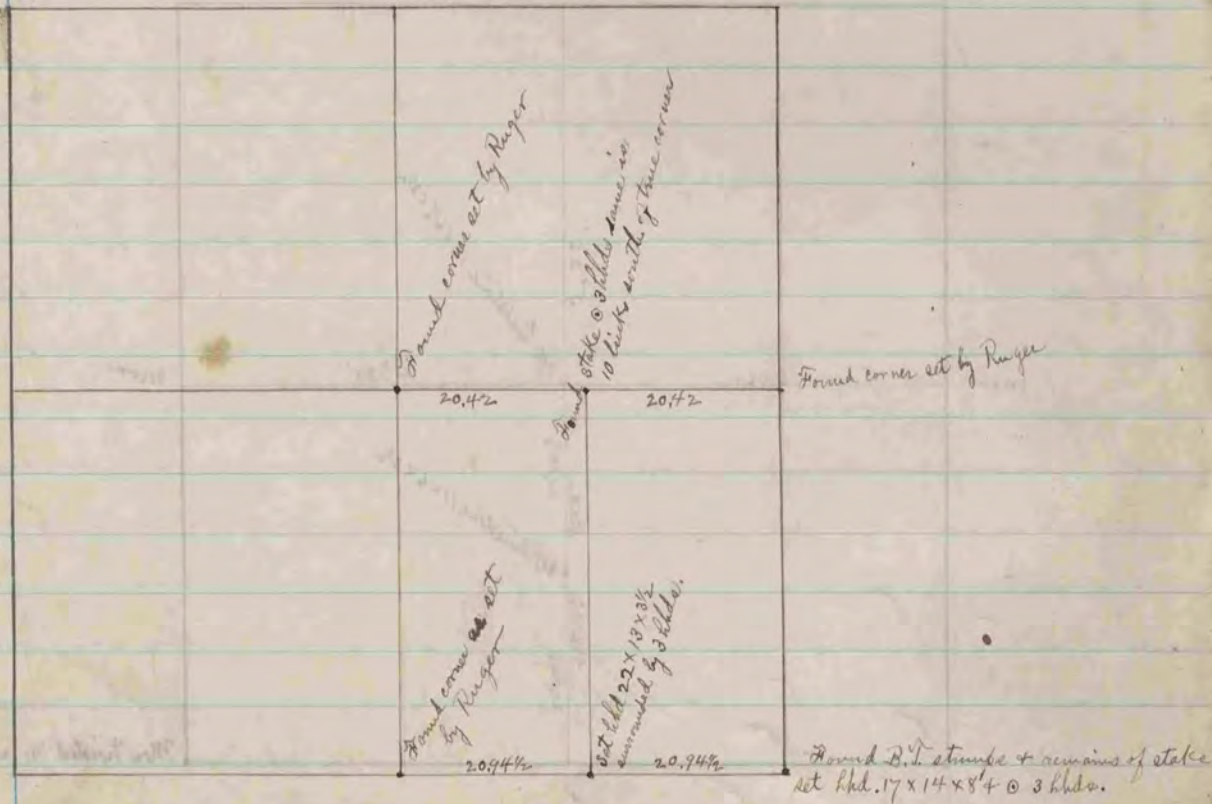 Found corner set by Ruger
Found stake @ 3 hhds same is
10 links south of true corner
20.42
20.42
Found corner set by Ruger
Found corner as set
by Ruger
Set hhd 22 x 13 x 3½
surrounded by 3 hhds.
20.94½
20.94½
Found B.T. stumps & remains of stake
set hhd. 17 x 14 x 8" 4 @ 3 hhds.